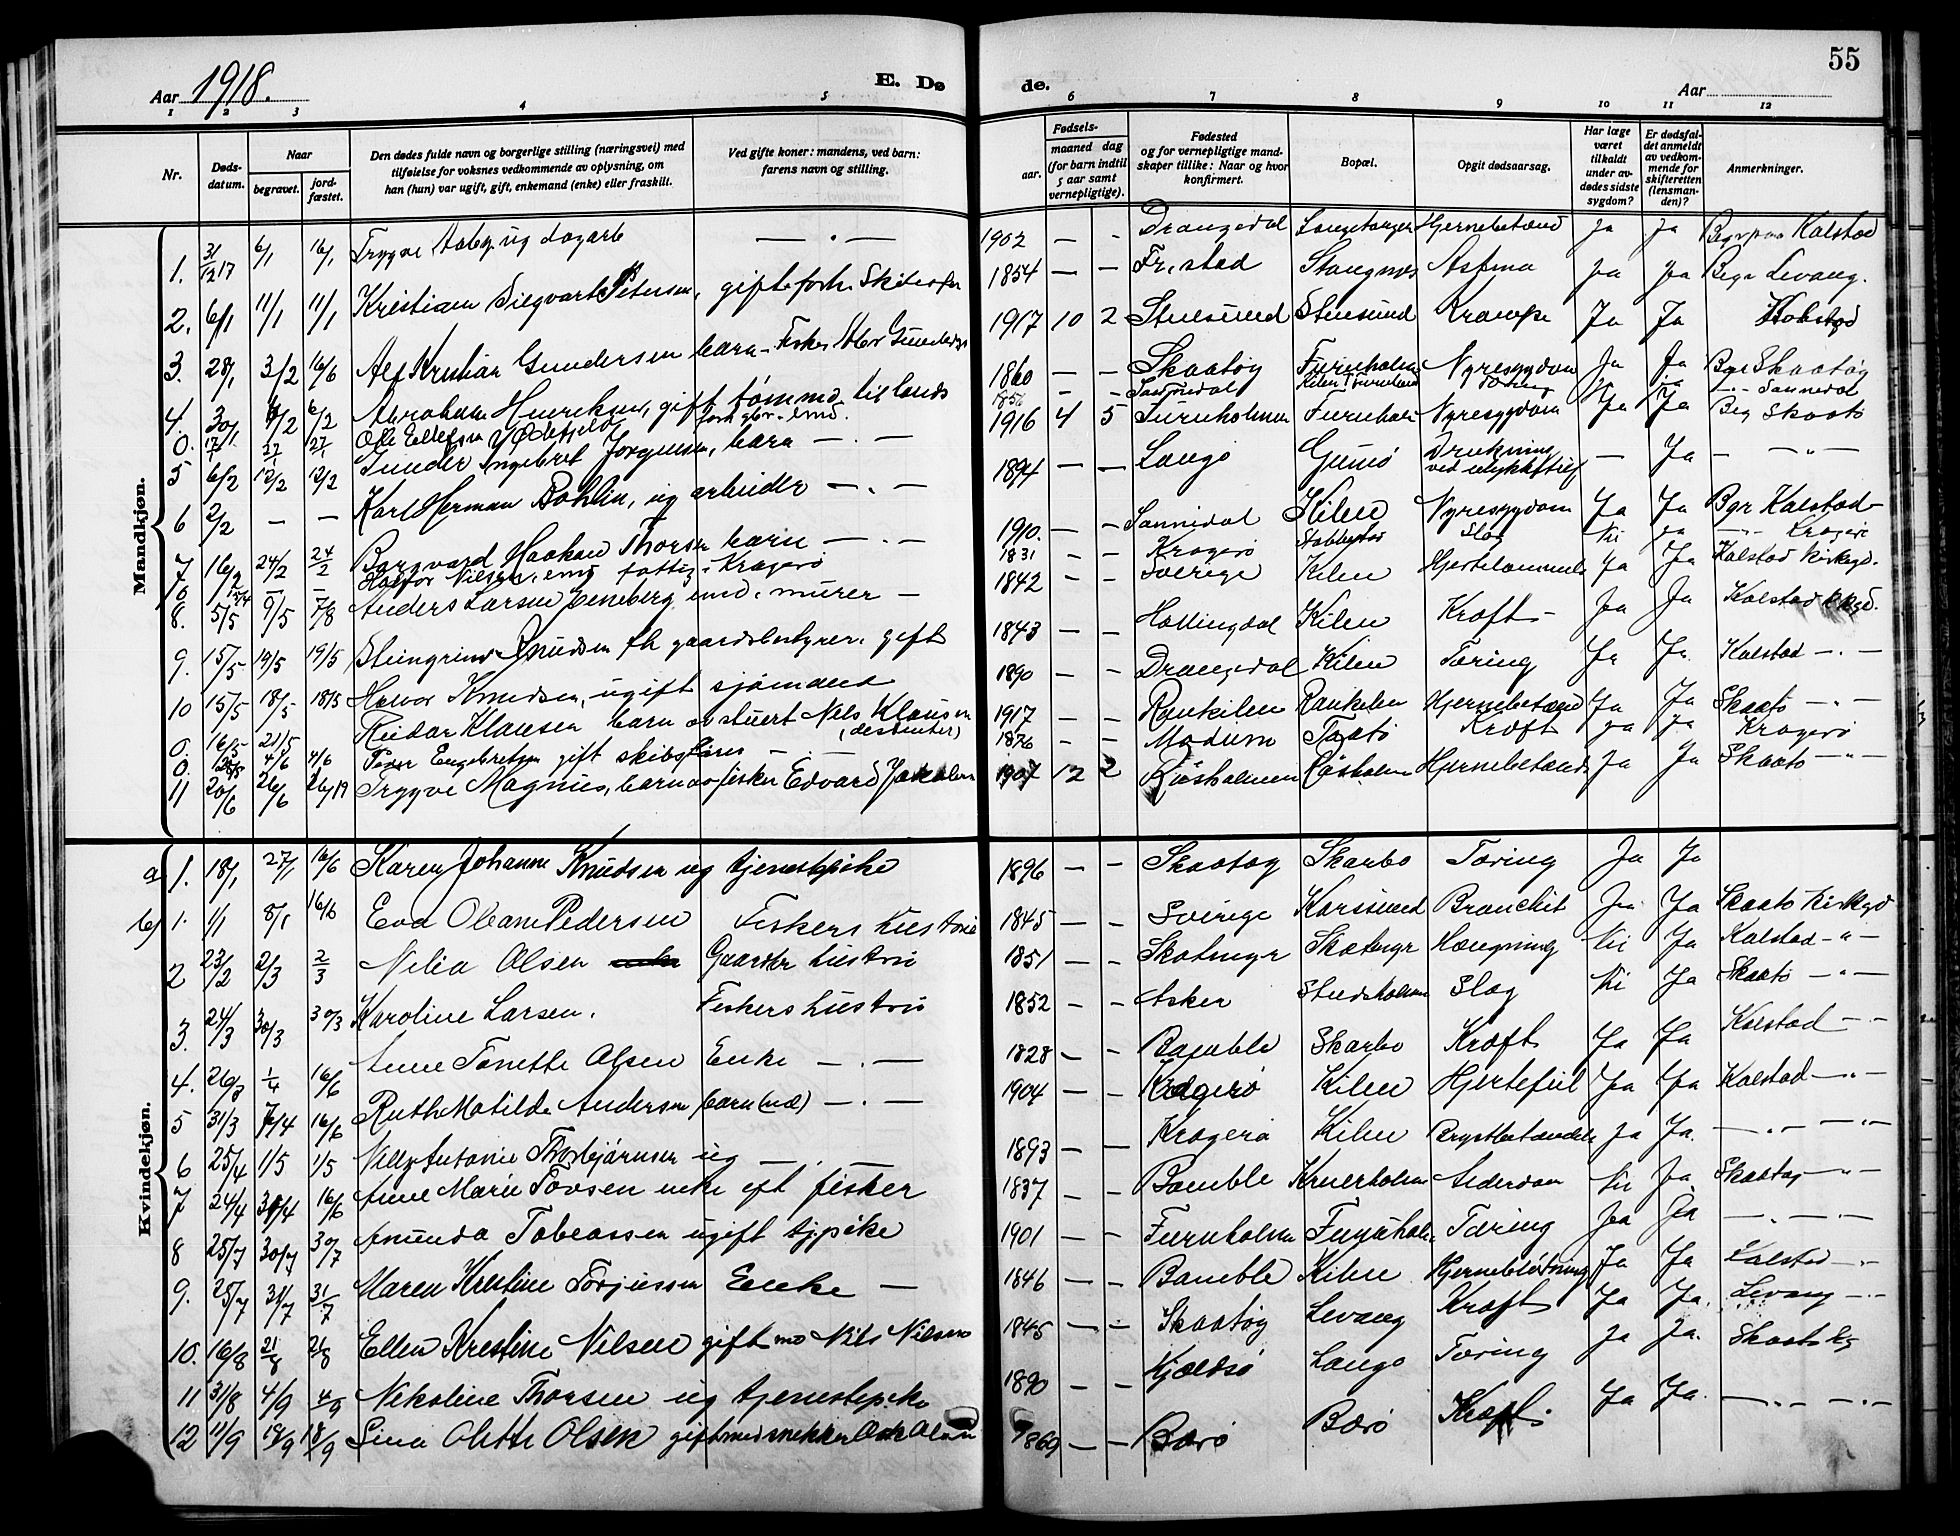 Aar 1918. E. Dø
de. Aar 55
1 2 3 4 5 6 7 8 9 10 11 12
Nr. Døds-datum. Naar begravet. jord-fæstet. Den dødes fulde navn og borgerlige stilling (næringsvei) med tilføielse for voksnes vedkommende av oplysning, om han (hun) var ugift, gift, enkemand (enke) eller fraskilt. Ved gifte koner: mandens, ved barn: farens navn og stilling.
Fødsels- aar. maaned dag (for barn indtil 5 aar samt vernepligtige). Fødested og for vernepligtige mand-skaper tillike: Naar og hvor konfirmert. Bopæl. Opgit dødsaarsag. Har læge været tilkaldt under av-dødes sidste sygdom? Er dødsfal-det anmeldt av vedkom-mende for skifteretten (lensman-den)? Anmerkninger.
Mandkjøn.
1. 31/12 17 6/1 16/1 Trygve Aabeg ug dagarb — " — 1902 — — Drangedal Langetangen Hjernebetænd Ja Ja Kalstad
2. 6/1 11/1 11/1 Kristian Siegvart Petersen, gift 1854 — — Stangnes Astma Ja Ja Begr Levang.
3. 28/1 3/2 16/6 Alf Kristian Gundersen barn - Fisker 1917 10 2 Stensund Stensund Krampe Ja Ja Kalstad
4. 30/1 6/2 6/2 Abraham Henriksen, gift tømmd. til lands 1860 — — Skaatøy Furuholmen Nyresygdom Ja Ja Begr Skaatøy
0. 17/1 27/1 27/1 Ole Ellefsen Sannidal Sannidal
5 6/2 12/2 12/2 Gunder Ingebret Jørgensen, barn — " — 1916 4 5 Furuholmen Furuholm Nyresygdom Ja Ja Beg Skaatø
6 2/2 — — Karl Herman Bohlin, ug arbeider — " — 1894 — — Langø Gumø Drukning ved ulykkestilf — Ja — " —
7 16/2 24/2 24/2 Borgvard Haakon Thorsen barn — " — 1910. — — Sannidal Kilen Nyresygdom Ja Ja Bgr Kalstad
0 Halvor Nilsen, em. fattig i Kragerø 1831 — — Kragerø Slag Nei Ja — Kragerø
8. 5/5 9/5 7/8 Anders Larsen Eneberg em. murer — 1842 — — Sverige Kilen Hjertelammelse Ja Ja Kalstad Kirkegd.
9. 15/5 19/5 19/5 Steingrim Knudsen fh gaardsbestyrer, gift 1843 — — Hallingdal Kilen Kræft — Ja Ja Kalstad Kkgd.
10 15/5 18/5 18/5 Halvor Knudsen, ugift sjømand 1890 — — Drangedal Kilen Tæring Ja Ja. Kalstad — " —
0. 16/5 21/5 Reidar Klausen barn av stuert Nils Klausen (dessenter) 1917 — — Rønkilen Rønkilen Hjernebetænd Ja Ja Skaatø — " —
0. 4/6 4/6 Peder Engebretsen gift skibsfører — — 1876 — — Modum Taatø Kræft ja ja Kragerø
11 20/6 26/6 Trygve Magnus, barn av fisker Edvard Jakobsen 1907 12 2 Røsholmen Røsholmen Hjernebetænd Ja Ja Skaatø — " —
Kvindekjøn.
a 1. 18/1 27/1 16/6 Karen Johanne Knudsen ug tjenestepike 1896 — — Skaatøy Skarbo Tæring Ja Ja
b) 1. 1/1 8/1 16/6 Eva Pedersen Fiskers hustru 1845 — — Sverige Korssund Bronchit Ja Ja Skaatø Kirkegd
2 23/2 2/3 2/3 Nilia Olsen Gaardbr hustru 1851 — — Skotmyr Skotmyr Hængning Nei Ja Kalstad — " —
3. 24/3 30/3 30/3 Karoline Larsen. Fiskers hustru 1852 — — Asker Studsholmen Slag Nei Ja Skaatø — " —
4. 26/3 1/4 16/6 Anne Tonette Olsen Enke — " — 1828 — — Bamble Skarbo Kræft Ja Ja Kalstad — " —
5 31/3 7/4 16/6 Ruth Matilde Andersen barn — " — 1904 — — Kragerø Kilen Hjertefeil Ja Ja Kalstad — " —
6 25/4 1/5 1/5 Nelly Antonie Thorbjørnsen ug — " — 1893 — — Kragerø Kilen Brystbetændels Ja Ja — " — " —
7 24/4 30/4 16/6 Anne Marie Tovsen enke eft fisker 1837 — — Bamble Alderdom Nei Ja. Skaatøy — " —
8 25/7 30/7 30/7 Amunda Tobeassen ugift tj.pike 1901 — — Furuholmen Furuholm. Tæring Ja Ja — " — " —
9. 25/7 31/7 31/7 Maren Kristine Torjussen Enke — 1846 — — Bamble Kilen Hjerneblødning Ja Ja Kalstad — " —
10. 16/8 21/8 21/8 Ellen Kristine Nilsen gift m Nils Nilsen 1845 — — Skaatøy Levang Kræft Ja Ja. Levang — " —
11 31/8 4/9 4/9 Nikoline Thorsen ug tjenestepike 1890 — — Kjældsø Langø Tæring Ja Ja. Skaatø Kg
12 11/9 18/9 18/9 Lina Olette Olsen gift med snekker Olsen 1869 — — Bærø Bærø Kræft. Ja Ja. — " — " —